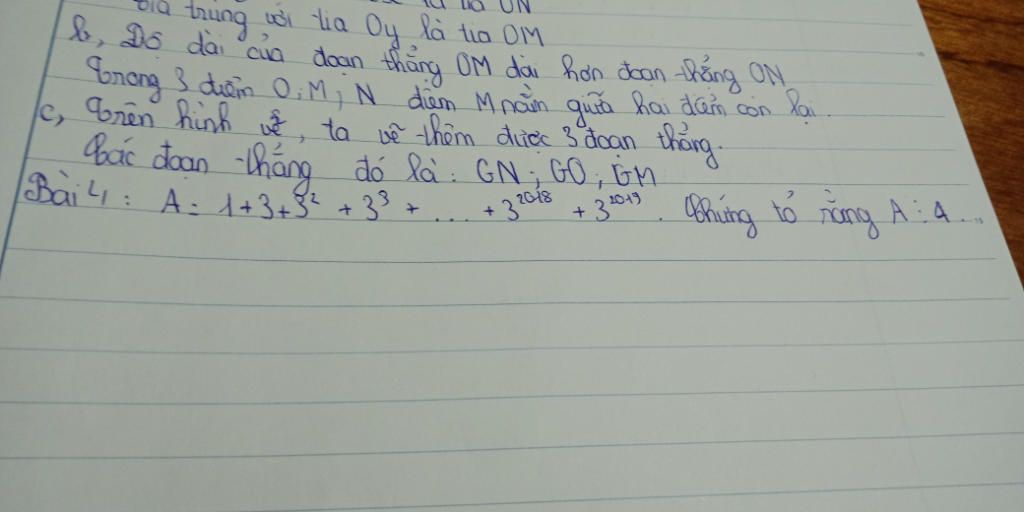 trùng với tia Oy là tia OM
b, Độ dài của đoạn thẳng OM dài hơn đoạn thẳng ON
Trong 3 điểm O, M, N điểm M nằm giữa hai điểm còn lại.
c, Trên hình vẽ, ta vẽ thêm được 3 đoạn thẳng.
Các đoạn thẳng đó là: GN; GO; GM
Bài 4: A = 1+3+3² + 3³ + ... + 3²⁰¹⁸ + 3²⁰¹⁹. Chứng tỏ rằng A ⋮ 4 ...